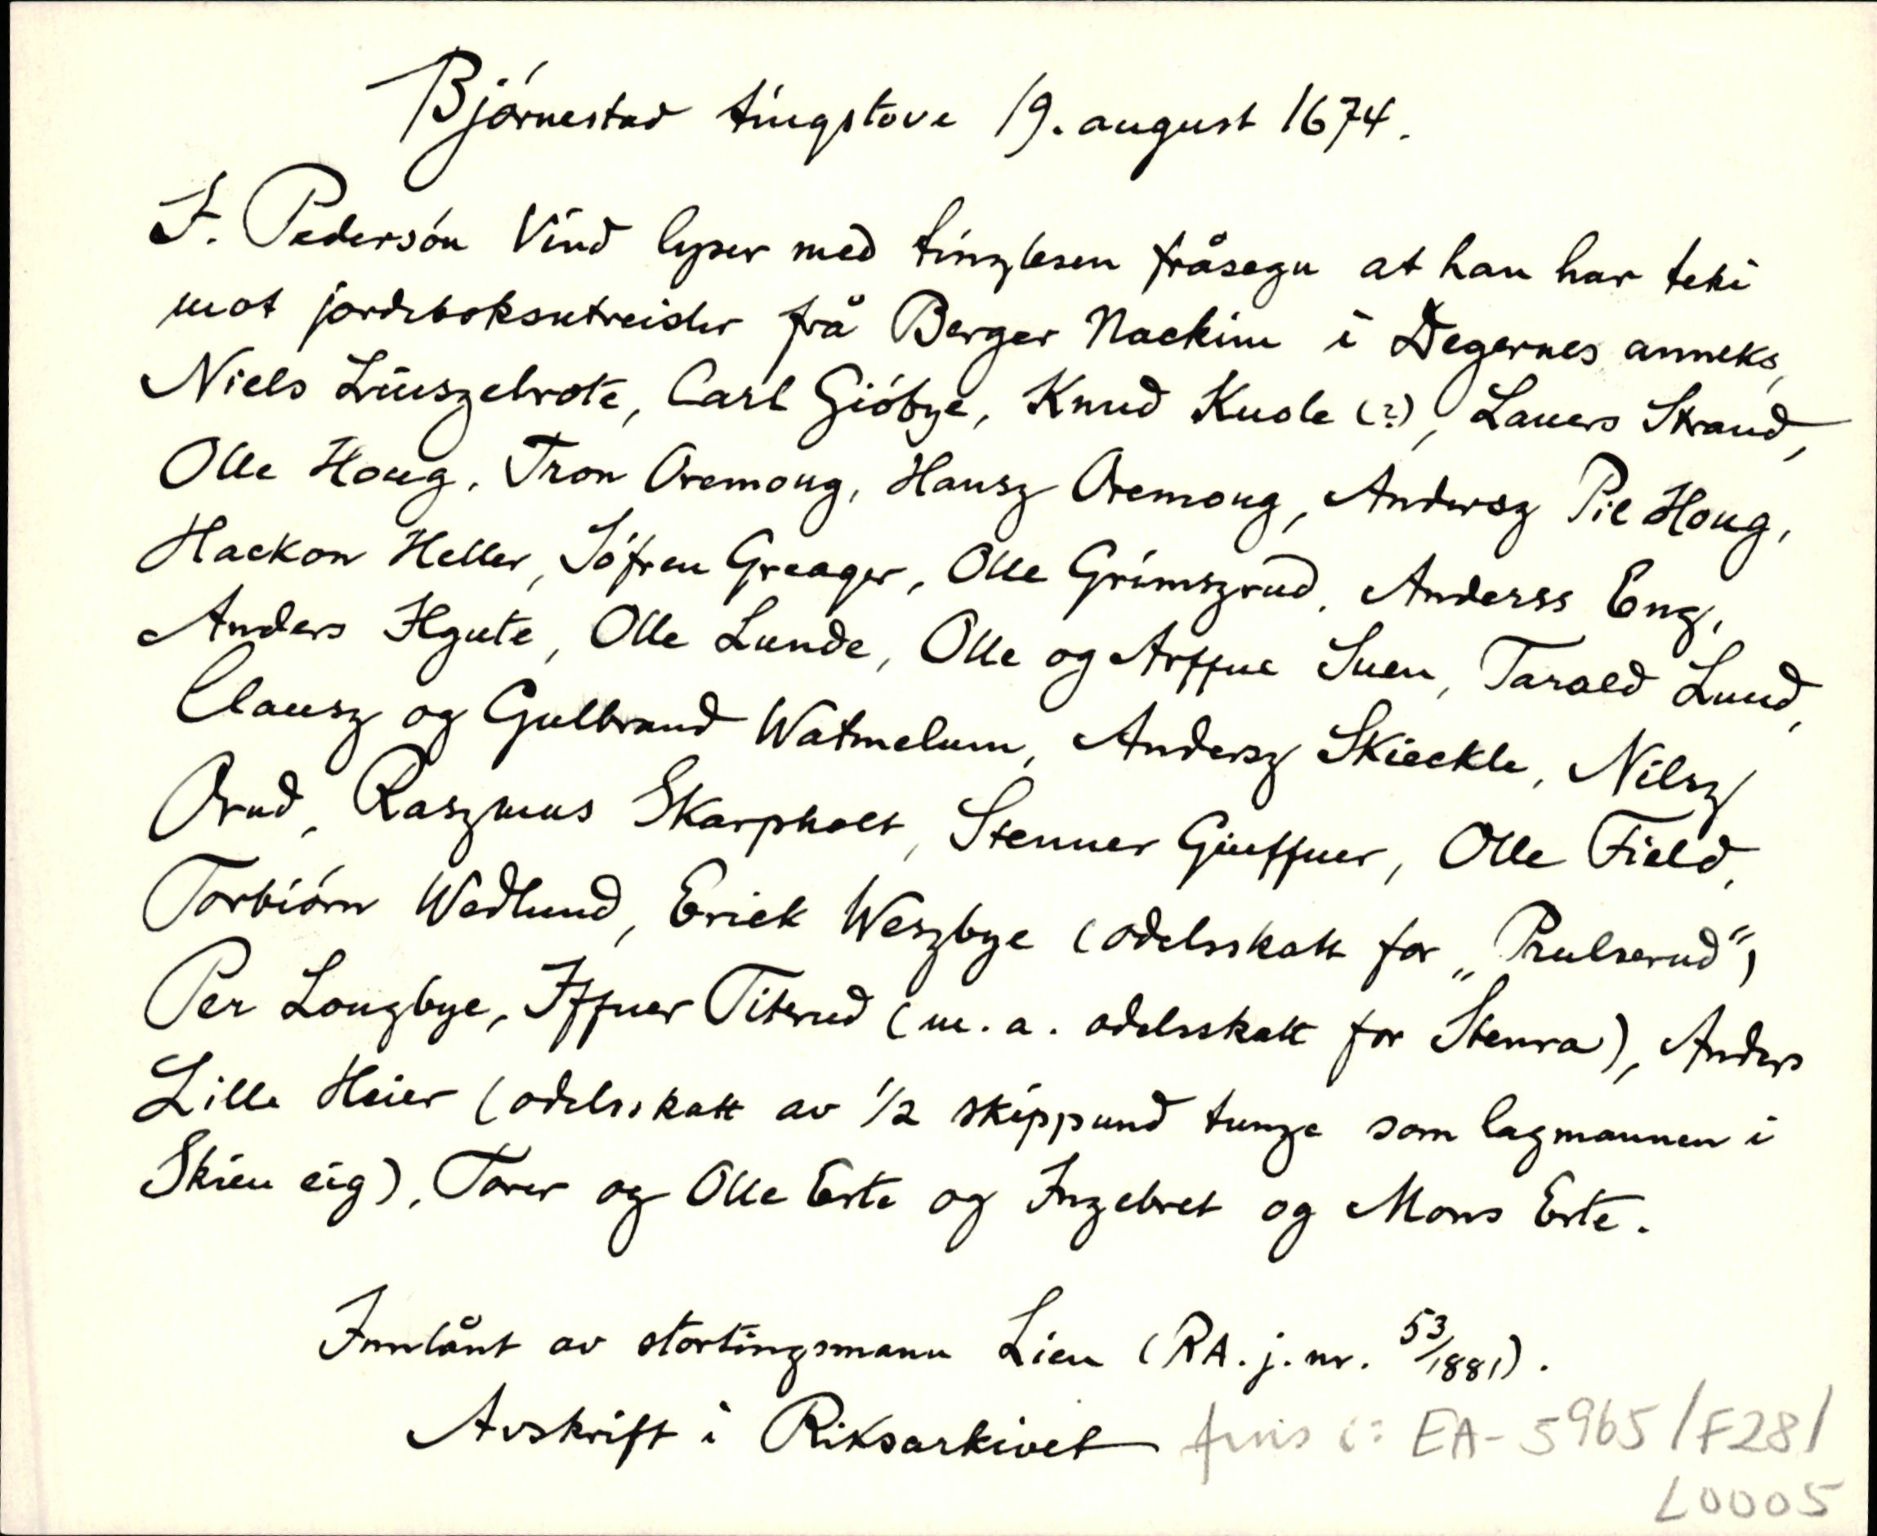 Bjórnestad tingstove 19. august 1674.
I. Pedersón Vind lyser med tinglesen fråsegn at han har teki
mot jordeboksutreisler frå Berger Nackim i Degernes anneks,
Niels Lüuszebrote, Carl Gióbye, Knud Kuole (?), Lauers Strand,
Olle Houg, Tron Oremoug, Hansz Oremoug, Andersz Pil Houg,
Hackon Heller, Sófren Greager, Olle Grimszrud, Anderss Eng,
Anders Hgute, Olle Lunde, Olle og Arffue Suen, Tarald Lund,
Clausz og Gulbrand Watmelum, Andersz Skieckle, Nilsz
Orud, Raszmus Skarpholt, Stenner Giuffuer, Olle Field,
Torbiórn Wedlund, Erick Weszbye (odelsskatt for „Prulserud")
Per Lougbye, Iffuer Titerud (m.a. odelsskatt for Stenra), Anders
Lille Heier (odelsskatt av 1/2 skippund tunge som lagmannen i
Skien eig), Torer og Olle Erte og Ingebret og Mons Erte.
Innlånt av stortingsmann Lien (RA. j. nr. 53/1881).
Avskrift i Riksarkivet fins i: EA-5965/F28/
L0005